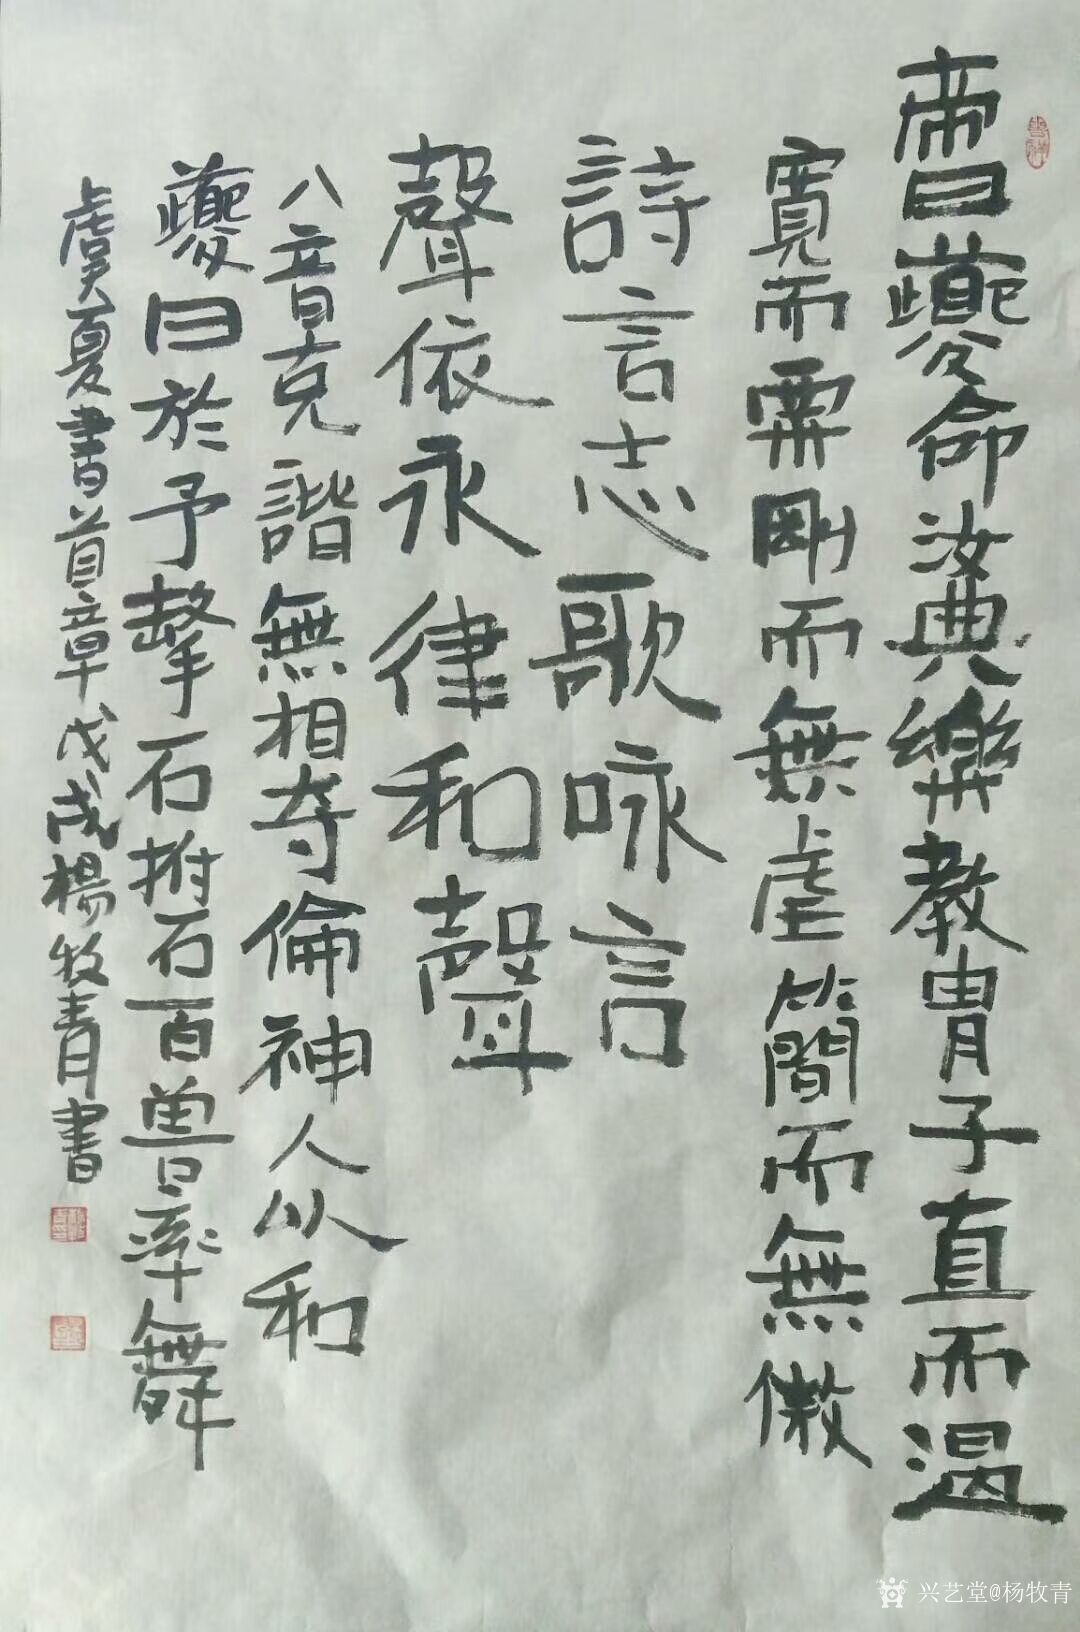 帝曰夔命汝典樂教胄子直而温
寬而栗剛而無虐簡而無傲
詩言志歌咏言
聲依永律和聲
八音克諧無相夺倫神人以和
夔曰於予擊石拊石百兽率舞
虞夏書首章戊戌楊牧青書
兴艺堂@杨牧青